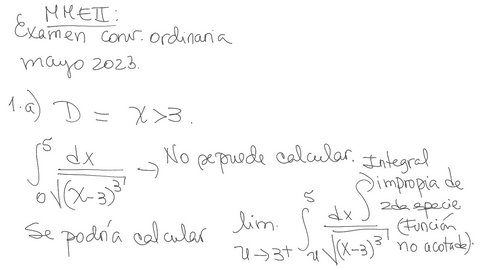 MMEII:
Examen conv. ordinaria
mayo 2023.
1.a) D = x>3.
∫₀⁵ dx/√(x-3)³ → No se puede calcular.
Integral impropia de 2da especie (función no acotada).
Se podría calcular lim u→3+ ∫ᵤ⁵ dx/√(x-3)³